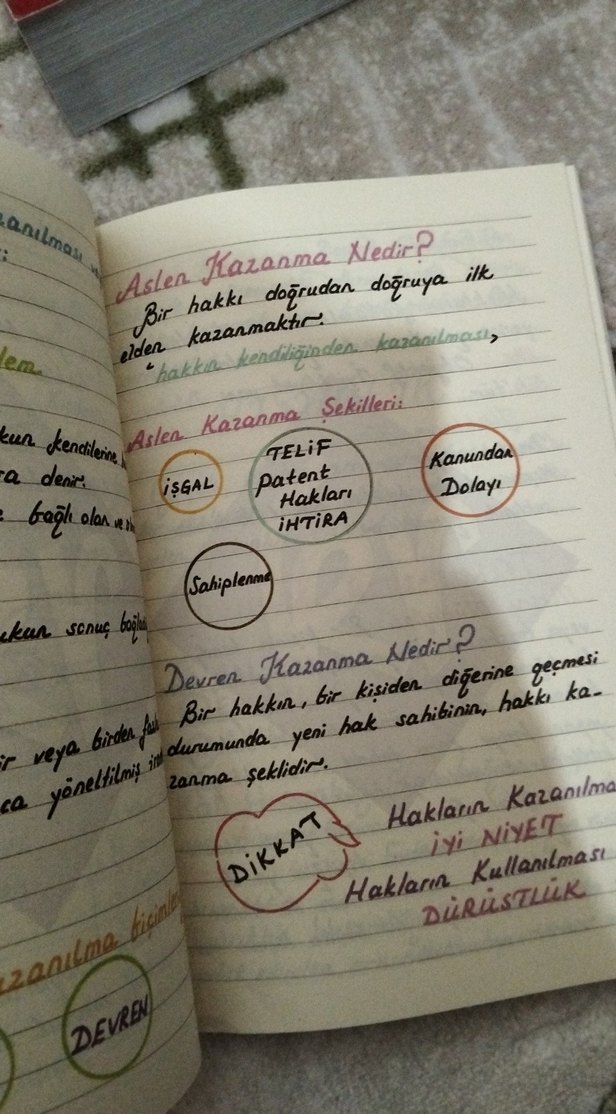 lem
kun kendilerine
ra denir.
bağlı olan ve
ukun sonuç
ir veya birden
ca yöneltilmiş
DEVREN
Aslen Kazanma Nedir?
Bir hakkı doğrudan doğruya ilk
elden kazanmaktır.
"hakkın kendiliğinden kazanılması,
Aslen Kazanma Şekilleri:
İŞGAL
TELİF
Patent
Hakları
İHTİRA
Kanundan
Dolayı
Sahiplenme
Devren Kazanma Nedir?
Bir hakkın, bir kişiden diğerine geçmesi
durumunda yeni hak sahibinin, hakkı ka-
zanma şeklidir.
DİKKAT
Hakların Kazanılma
İYİ NİYET
Hakların Kullanılması
DÜRÜSTLÜK